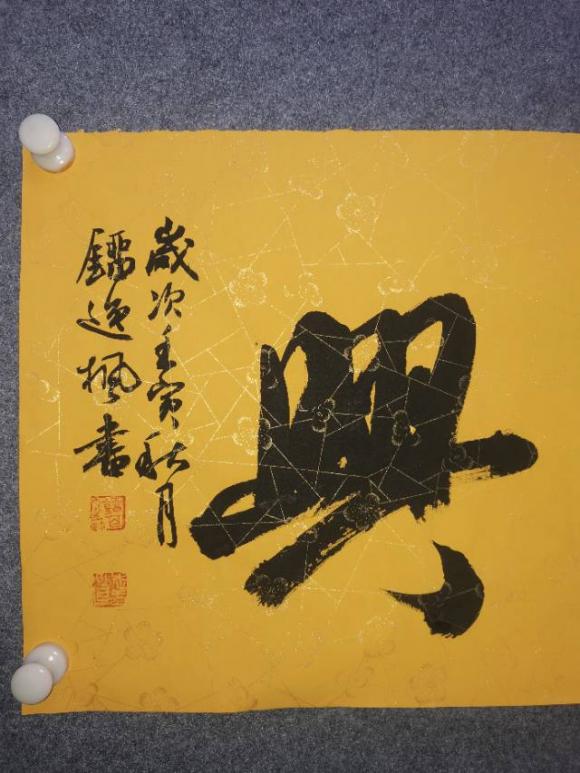 興
歲次壬寅秋月
鐳逸楓書